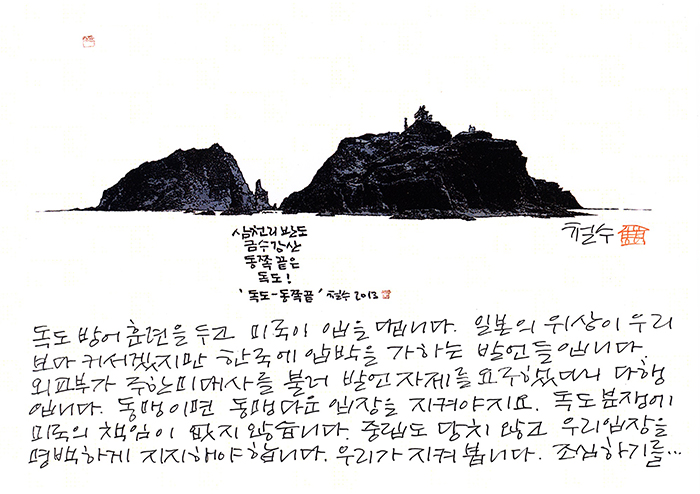 철수
삼천리 반도
금수강산
동쪽 끝은
독도!
'독도-동쪽끝' 철수 2013
독도 방어 훈련을 두고 미국이 입을 댑니다. 일본의 위상이 우리
보다 커서겠지만 한국에 압박을 가하는 발언들입니다.
외교부가 주한미대사를 불러 발언자제를 요구했다니 다행
입니다. 동맹이면 동맹다운 입장을 지켜야지요. 독도분쟁에
미국의 책임이 없지 않습니다. 중립도 당치 않고 우리입장을
명백하게 지지해야 합니다. 우리가 지켜 봅니다. 조심하기를...